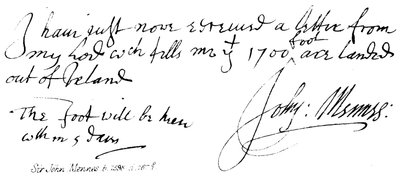 I haue iust now receiued a letter from
my Lord wch tells me yt 1700 foot are landed
out of Ireland
The foot will be here
wthin 5 daies
John: Mennes:
Sir John Mennes b. 1598 d. 1671